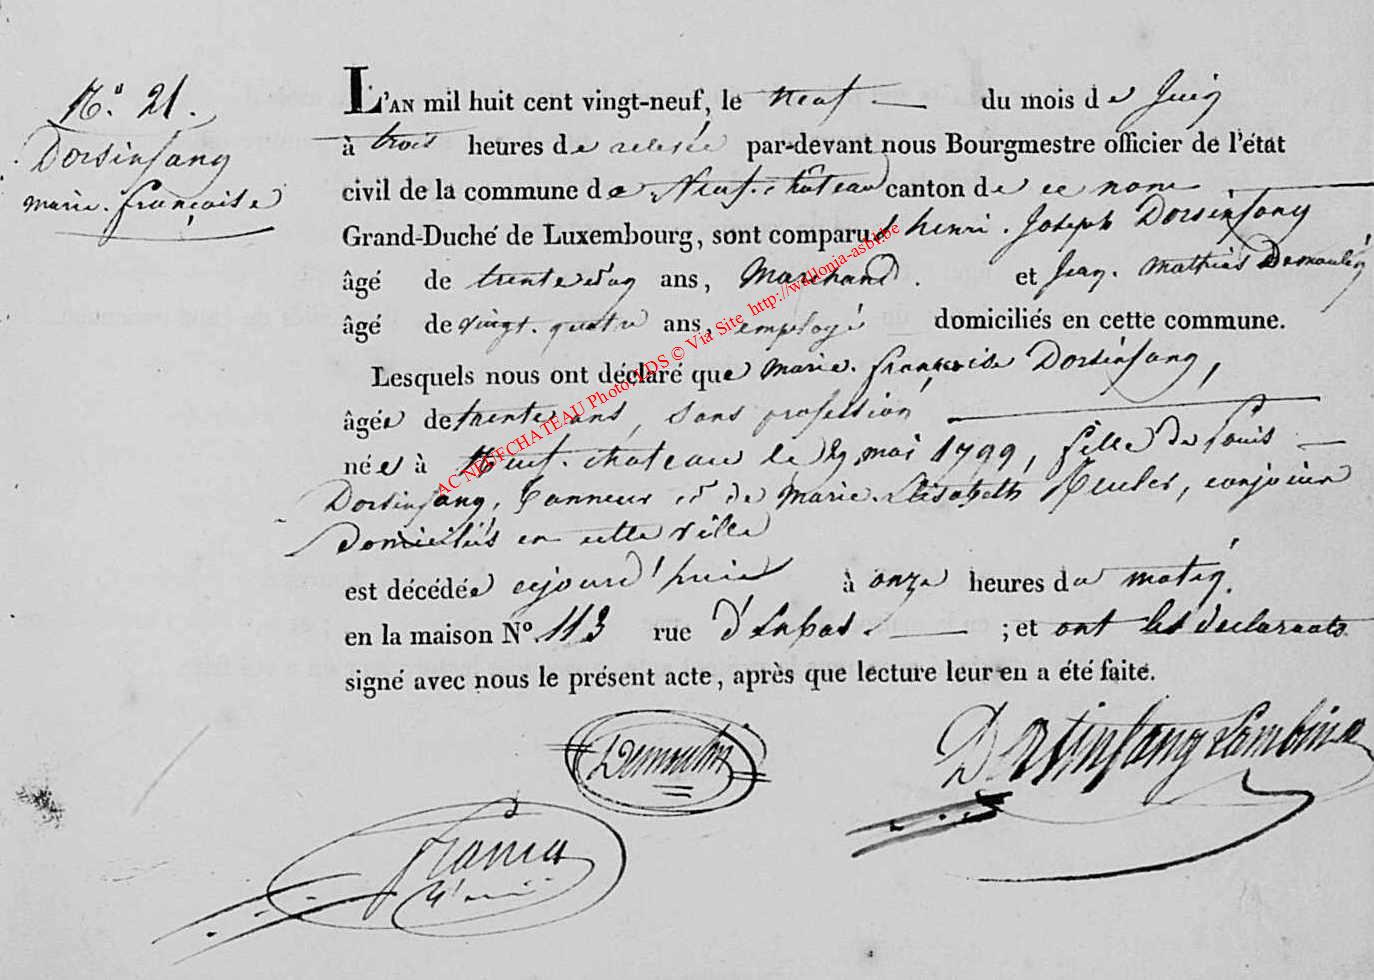 N.° 21.
Dorsinfang
marie. françoise
L'AN mil huit cent vingt-neuf, le neuf du mois de Juin
à trois heures de relevée par-devant nous Bourgmestre officier de l'état
civil de la commune de Neuf-château canton de ce nom
Grand-Duché de Luxembourg, sont comparus henri. Joseph Dorsinfang
âgé de trente cinq ans, Marchand. et Jean. mathieu Demoulin
âgé de vingt. quatre ans, employé domiciliés en cette commune.
Lesquels nous ont déclaré que marie. françoise Dorsinfang,
âgée de trente ans, sans profession
née à Neuf. chateau le 29 mai 1799, fille de Louis
Dorsinfang, Tanneur et de Marie. Elisabeth, conjoins
Domiciliés en cette ville
est décédée aujourd'huie à onze heures du matin.
en la maison N° 113 rue ; et ont les déclarants
signé avec nous le présent acte, après que lecture leur en a été faite.
Demoulin
Dorsinfang Lambin
AC NEUFCHATEAU Photo JDS © Via Site http://wallonia-asbl.be